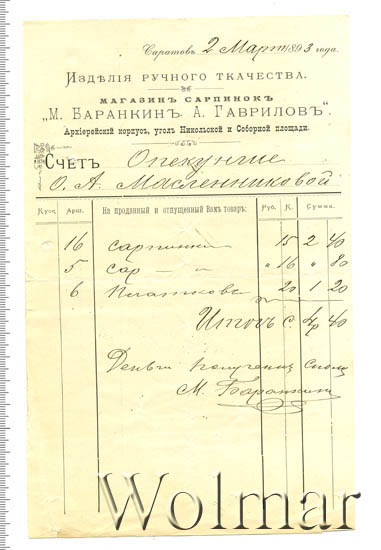 Саратовъ 2 Март 1893 года.
Издѣлія ручного ткачества.
МАГАЗИНЪ САРПИНОКЪ
„М. Баранкинъ. А. Гавриловъ“.
Архіерейскій корпусъ, уголъ Никольской и Соборной площади.
Счетъ Опекунше
О. А. Масленниковой
Куск. Арш. На проданный и отпущенный Вамъ товаръ: Руб. К. Сумма.
16 сарпинки 15 2 40
5 сар — „ — „ 16 „ 80
6 Платковъ 20 1 20
Итогъ С. 4р 40
Деньги получены
М. Баранкинъ
Wolmar